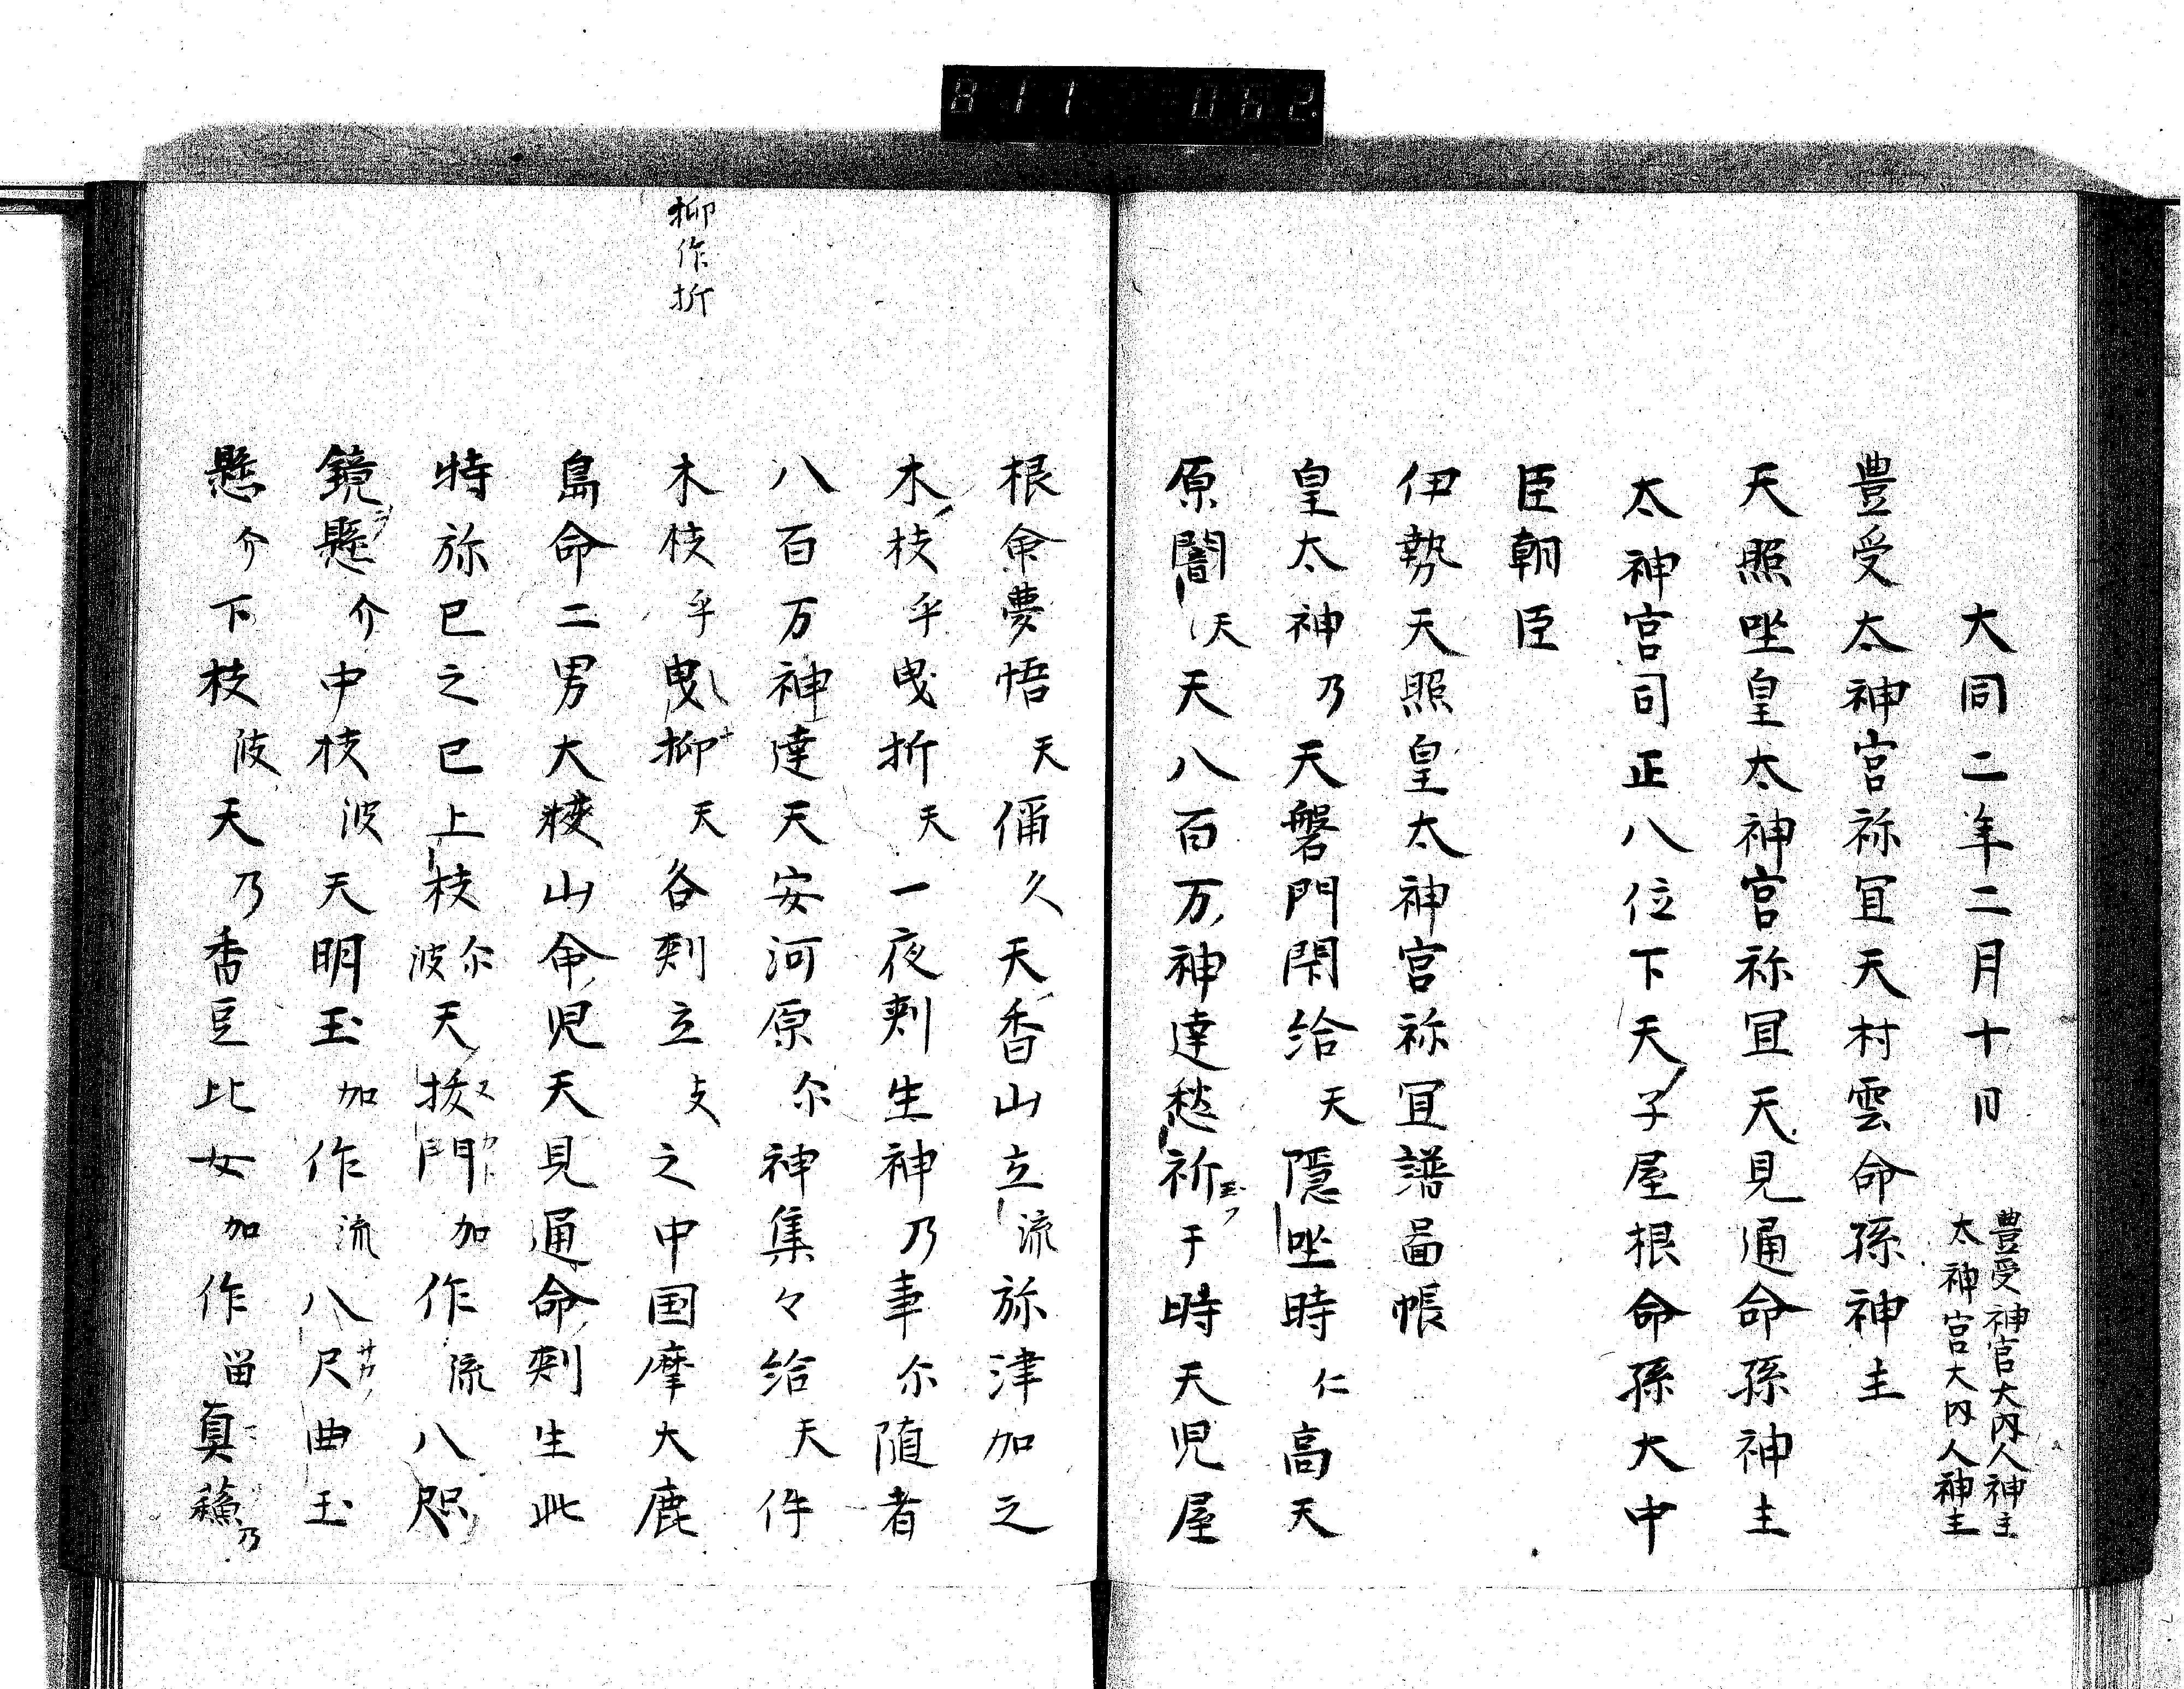 大同二年二月十日 豊受神宮大内人神主
太神宮大内人神主
豊受太神宮祢冝天村雲命孫神主
天照坐皇太神宮祢冝天見通命孫神主
太神宮司正八位下天子屋根命孫大中
臣朝臣
伊勢天照皇太神宮祢冝譜啚帳
皇太神乃天磐門閇給天隠坐時仁高天
原闇天天八百万神達愁祈于時天児屋
根命夢悟天偁久天香山立流祢津加之
木枝乎曳折天一夜刺生神乃事尓随者
八百万神達天安河原尓神集々給天件
木枝乎曳抑天谷刺立支之中国摩大鹿
島命二男大糉山命児天見通命刺生此
特祢巳之巳上枝尓波天抜門加作流八咫
鏡懸介中枝波天明玉加作流八尺曲玉
懸介下枝波天乃香豆比女加作畄真蘓乃
抑作折